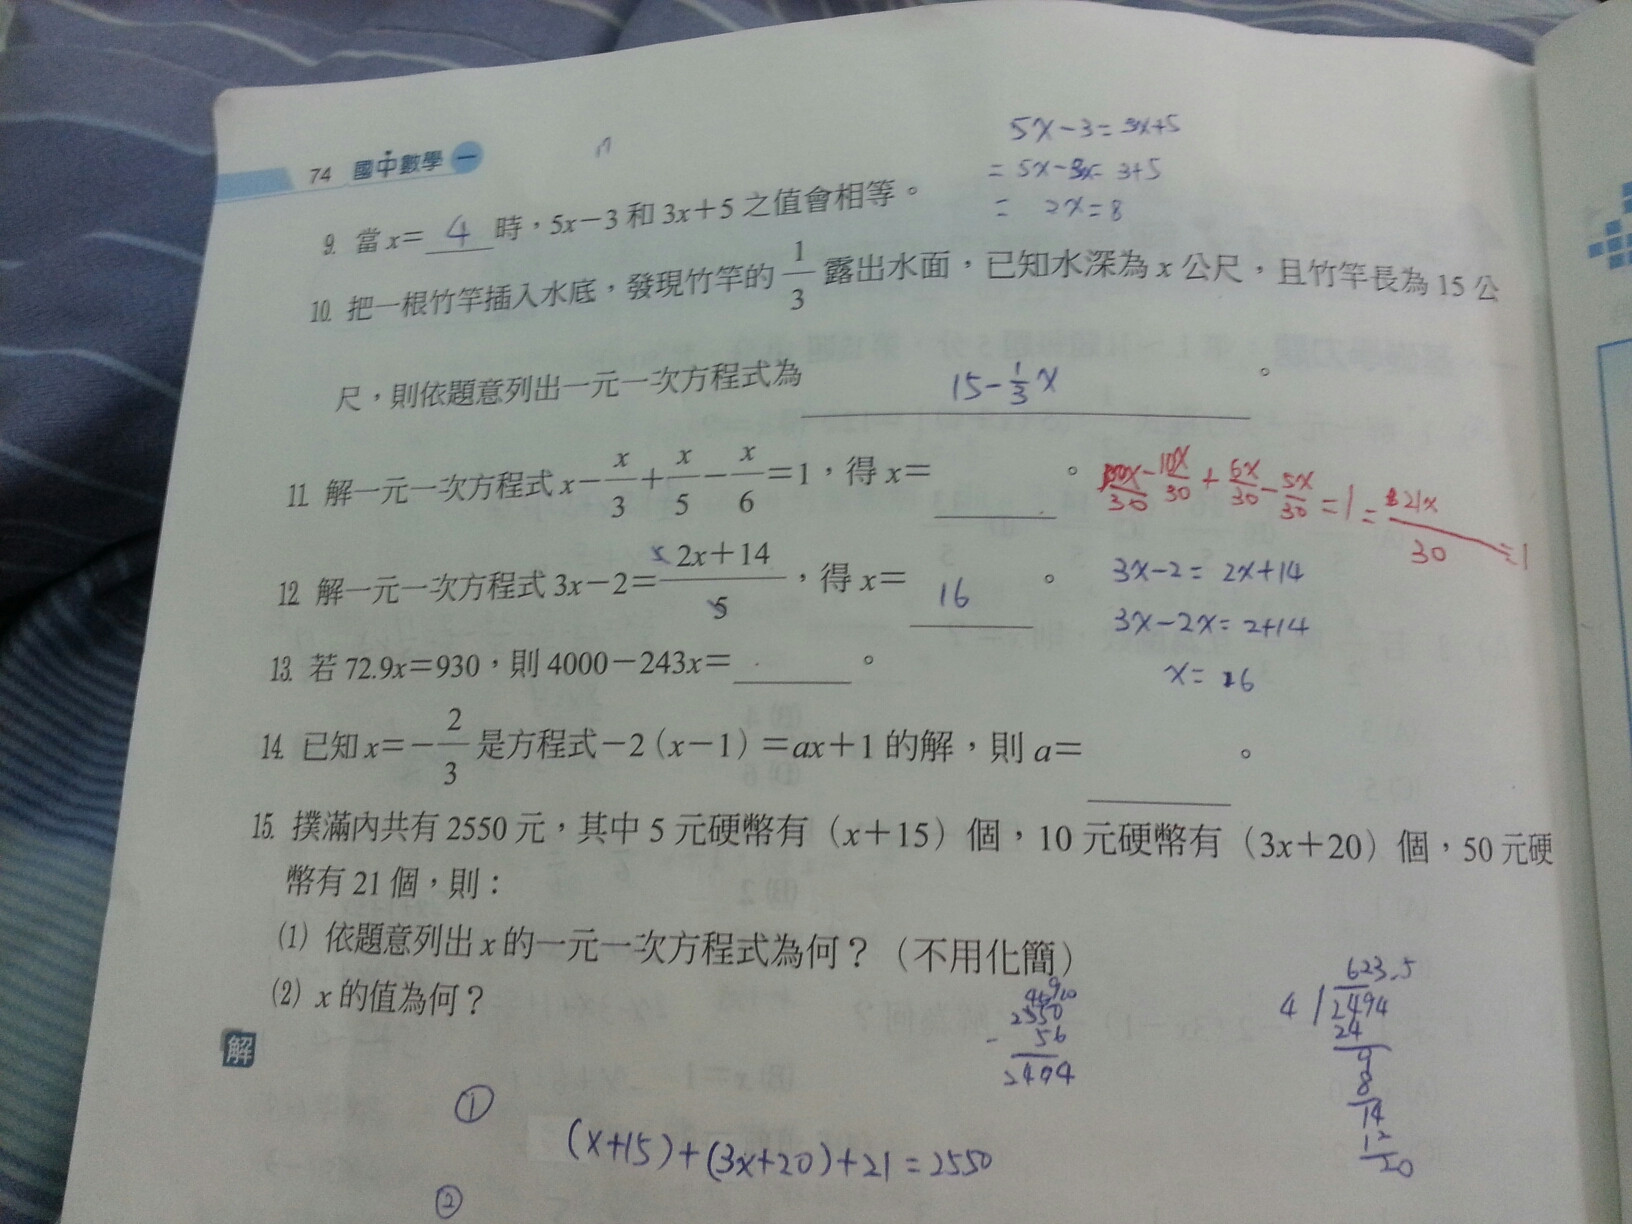 74 國中數學 一
5x-3=3x+5
= 5x-3x= 3+5
= 2x=8
9. 當 x= 4 時，5x-3 和 3x+5 之值會相等。
10. 把一根竹竿插入水底，發現竹竿的 1/3 露出水面，已知水深為 x 公尺，且竹竿長為 15 公
尺，則依題意列出一元一次方程式為 15-1/3x 。
11. 解一元一次方程式 x-x/3+x/5-x/6=1，得 x= 。
30x/30-10x/30+6x/30-5x/30=1=21x/30=1
12. 解一元一次方程式 3x-2=2x+14/5，得 x= 16 。
3x-2= 2x+14
3x-2x= 2+14
x= 16
13. 若 72.9x=930，則 4000-243x= 。
14. 已知 x=-2/3 是方程式-2（x-1）=ax+1 的解，則 a= 。
15. 撲滿內共有 2550 元，其中 5 元硬幣有（x+15）個，10 元硬幣有（3x+20）個，50 元硬
幣有 21 個，則：
(1) 依題意列出 x 的一元一次方程式為何？（不用化簡）
(2) x 的值為何？
解
2550
- 56
2494
623.5
4 2494
24
9
8
14
12
20
① (x+15)+(3x+20)+21=2550
②